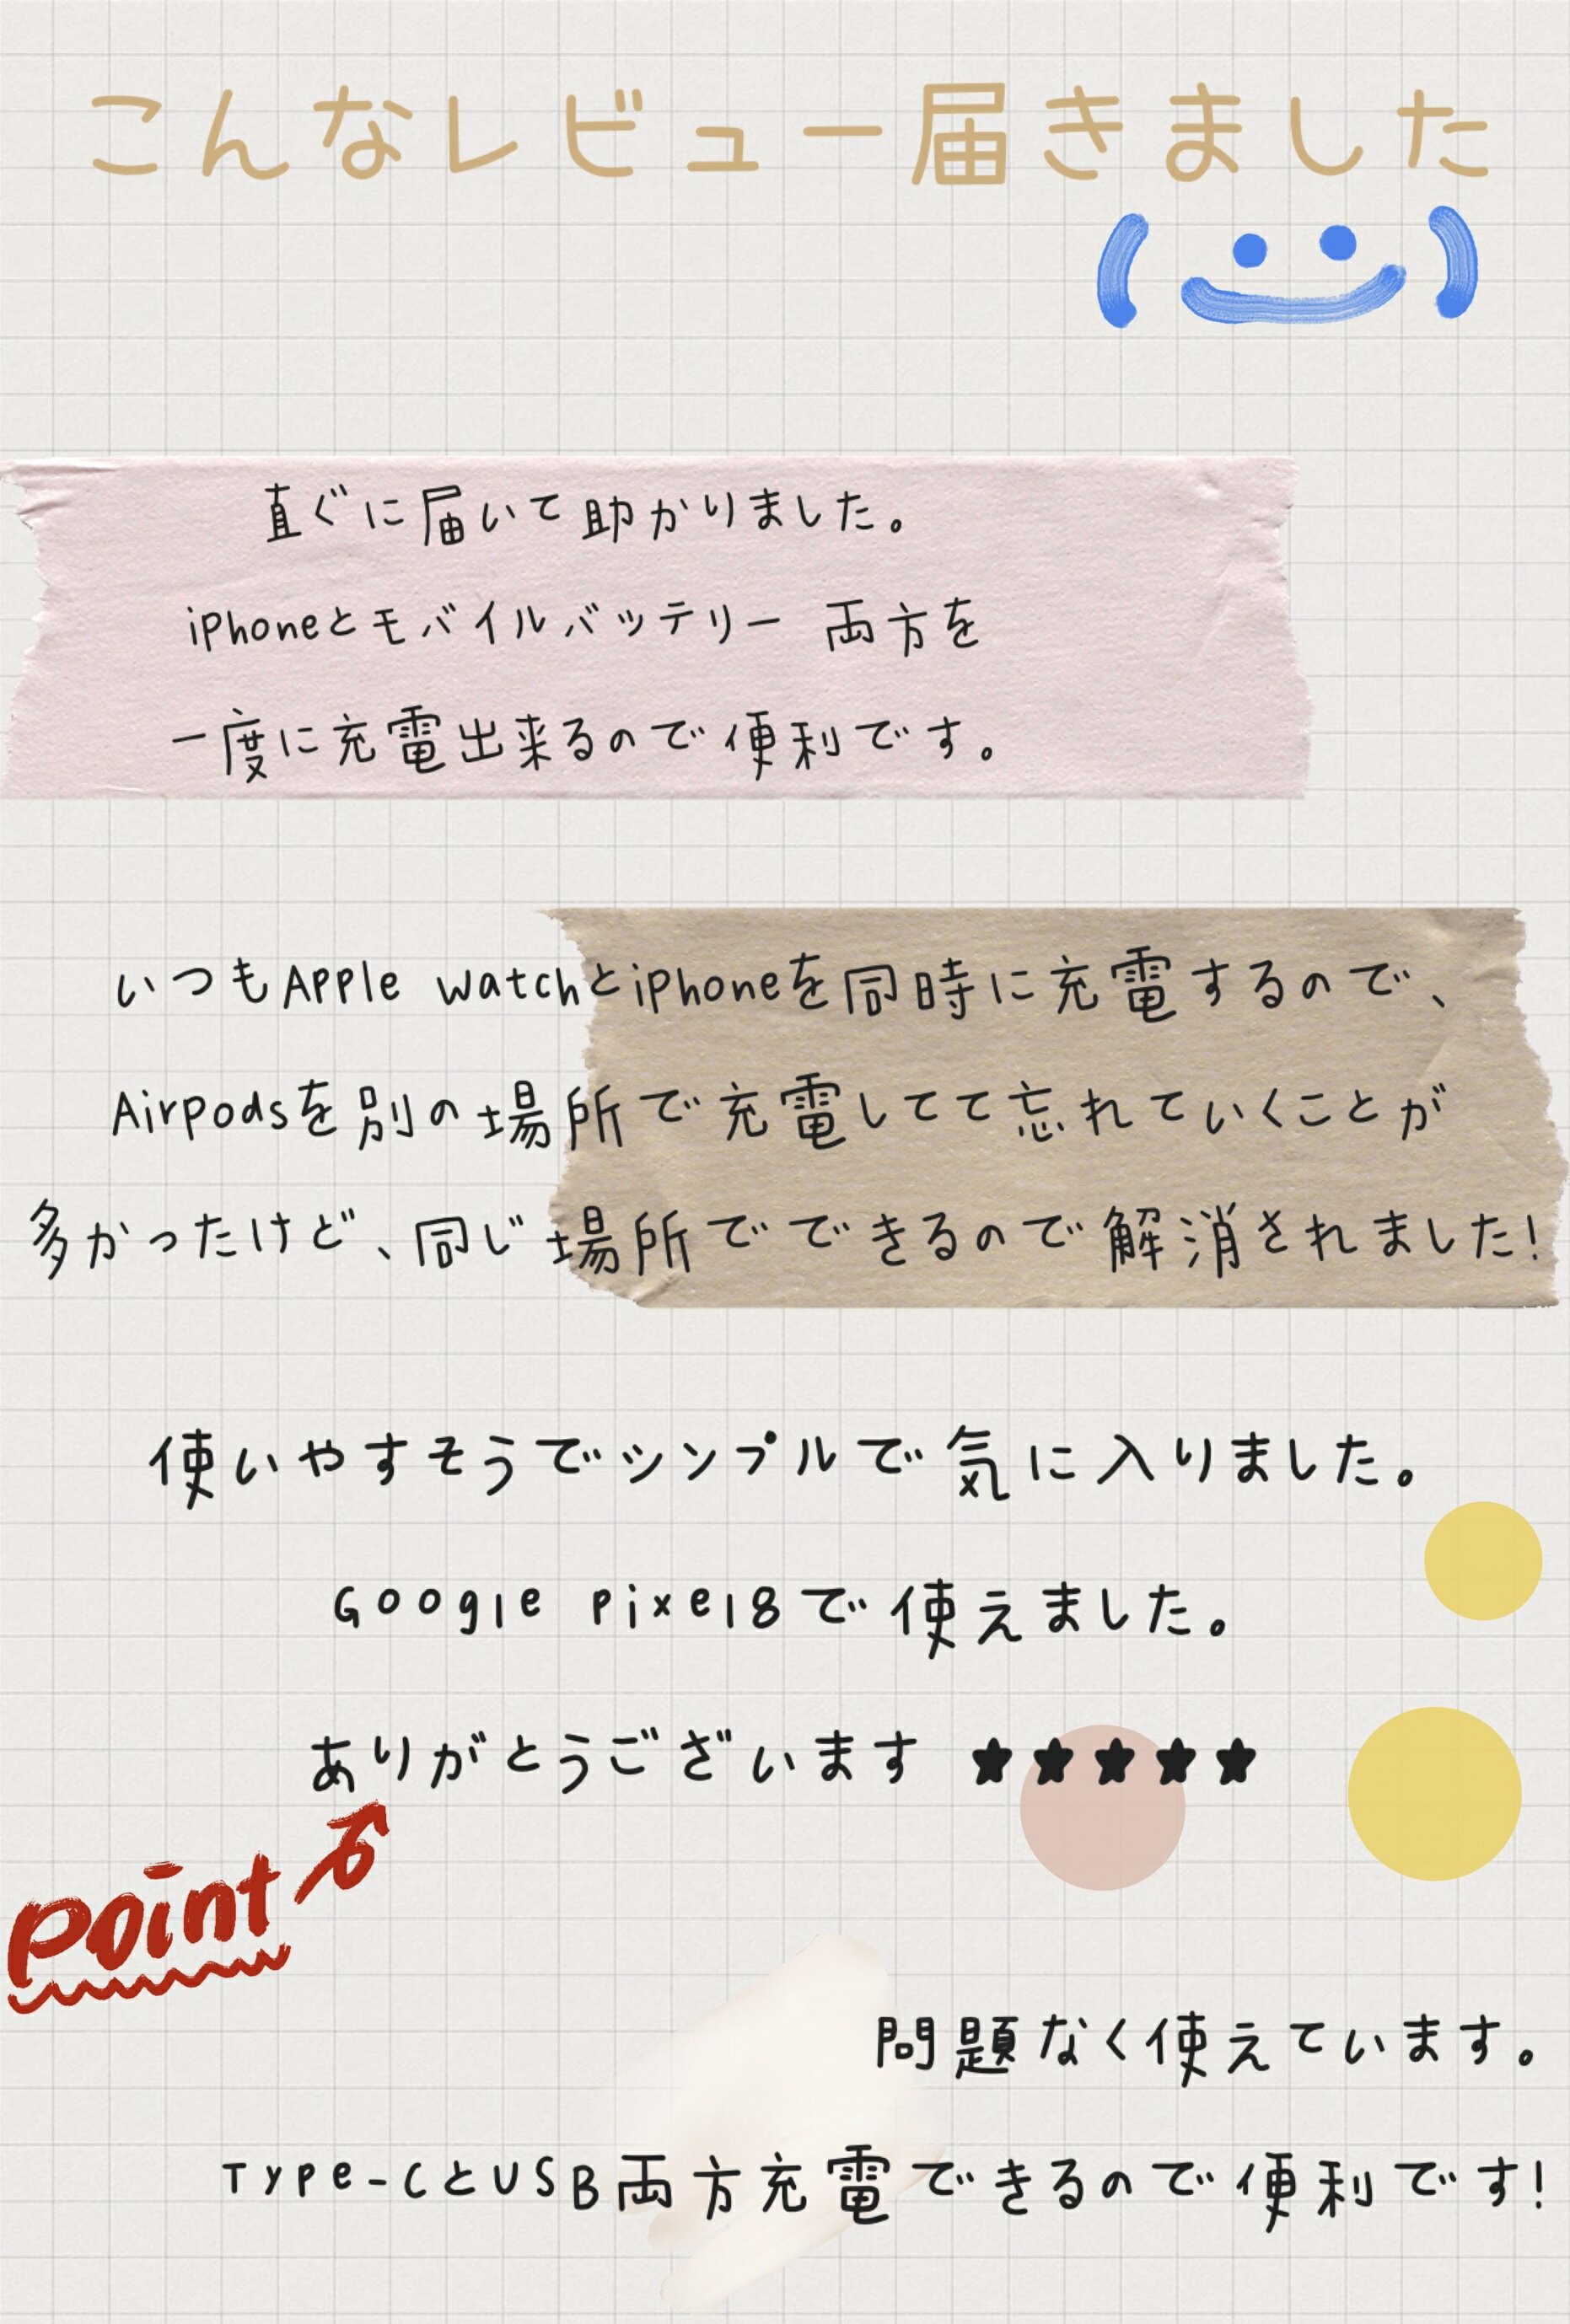 こんなレビュー届きました
直ぐに届いて助かりました。
iPhoneとモバイルバッテリー 両方を
一度に充電出来るので便利です。
いつもApple watchとiPhoneを同時に充電するので、
Airpodsを別の場所で充電してて忘れていくことが
多かったけど、同じ場所でできるので解消されました!
使いやすそうでシンプルで気に入りました。
Google pixel8で使えました。
ありがとうございます ★★★★★
point
問題なく使えています。
Type-CとUSB両方充電できるので便利です!